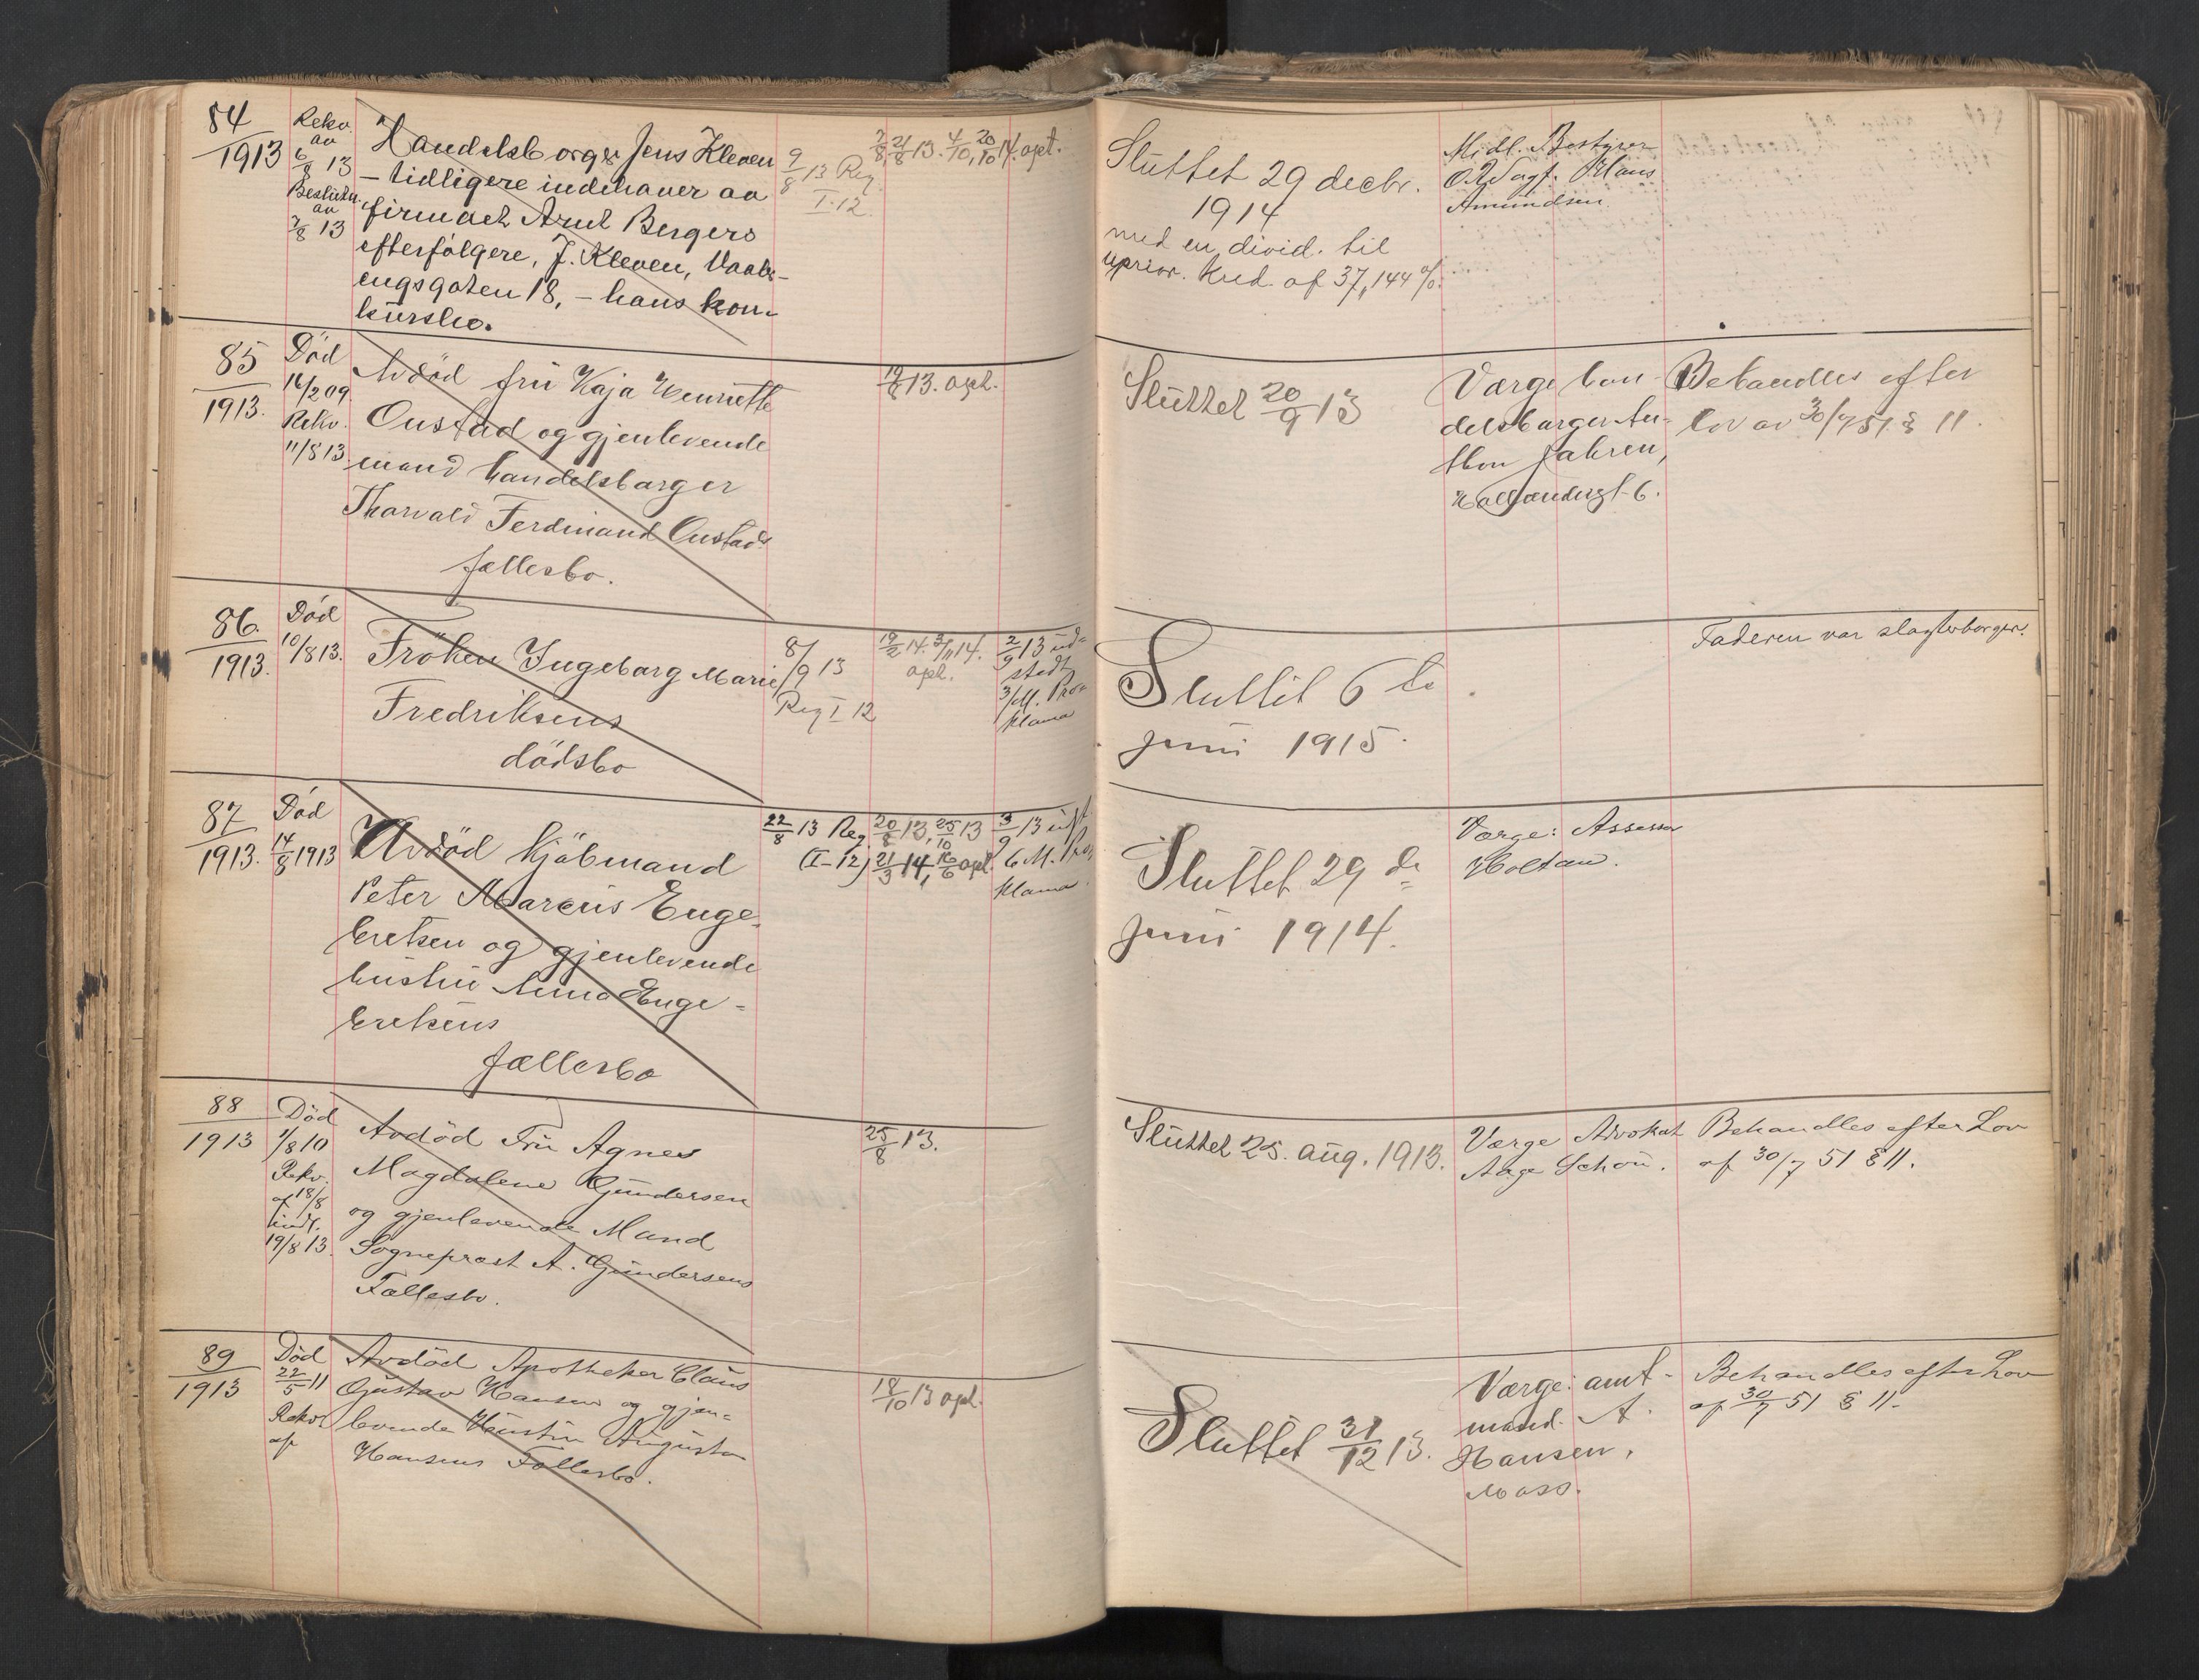 84
1913
Rekv.
av
6/8 13
Beslutn.
av
7/8 13
Handelsborger Jens Kleven
– tidligere indehaver av
firmaet Arnt Bergers
efterfølgere, J. Kleven, Vaale-
engsgaten 18, – hans kon-
kursbo.
9/8 13 Reg
I-12.
7/8 21/8 13. 4/10, 20/10 14. opt.
Sluttet 29 decbr.
1914
med en divid. til
uprior. Kred. af 37,144 %.
Midl. Bestyrer
O.R.Sagf. Hans
Amundsen
85
1913.
Død
14/2 09
Rekv.
11/8 13
Avdød fru Kaja Henriette
Oustad og gjenlevende
mand handelsborger
Thorvald Ferdinand Oustads
fællesbo.
19/8 13. opt.
Sluttet 20/9 13
Værge han-
delsborger An-
thon Jahren,
Hollændergt. 6.
Behandles efter
lov av 30/7 51 § 11.
86.
1913.
Død
10/8 13.
Frøken Ingeborg Marie
Fredriksens
dödsbo
8/9 13
Reg I 12
19/2 14. 3/11 14.
opt.
2/9 13 ud-
stedt
3/M. Pro-
klama
Sluttet 6 te
juni 1915.
Faderen var slagterborger.
87
1913.
Död
14/8 1913
Avdöd kjöbmand
Peter Marcus Enge-
bretsen og gjenlevende
hustru Anna Enge-
bretsens
fællesbo
22/8 13 Reg
(I-12)
20/8 13, 25/10 13
21/3 14, 16/6 opt.
3/9 13 udst
6 M. Pro-
klama.
Sluttet 29 de
juni 1914.
Værge: Assessor
Holtan.
88
1913
Död
1/8 10
Rekv.
af 18/8
indk.
19/8 13.
Avdöd Fru Agnes
Magdalene Gundersen
og gjenlevende Mand
Sogneprest A. Gundersens
Fællesbo.
25/8 13.
Sluttet 25. aug. 1913.
Værge Advokat
Aage Schou.
Behandles efter Lov
af 30/7 51 § 11.
89
1913
Död
22/5 11
Rekv.
af
Avdöd Apotheker Claus
Gustav Hansen og gjen-
levende Hustru Augusta
Hansens Fællesbo.
18/10 13 opt.
Sluttet 31/12 13.
Værge: amt-
mand A.
Hansen,
Moss.
Behandles efter Lov
af 30/7 51 § 11.